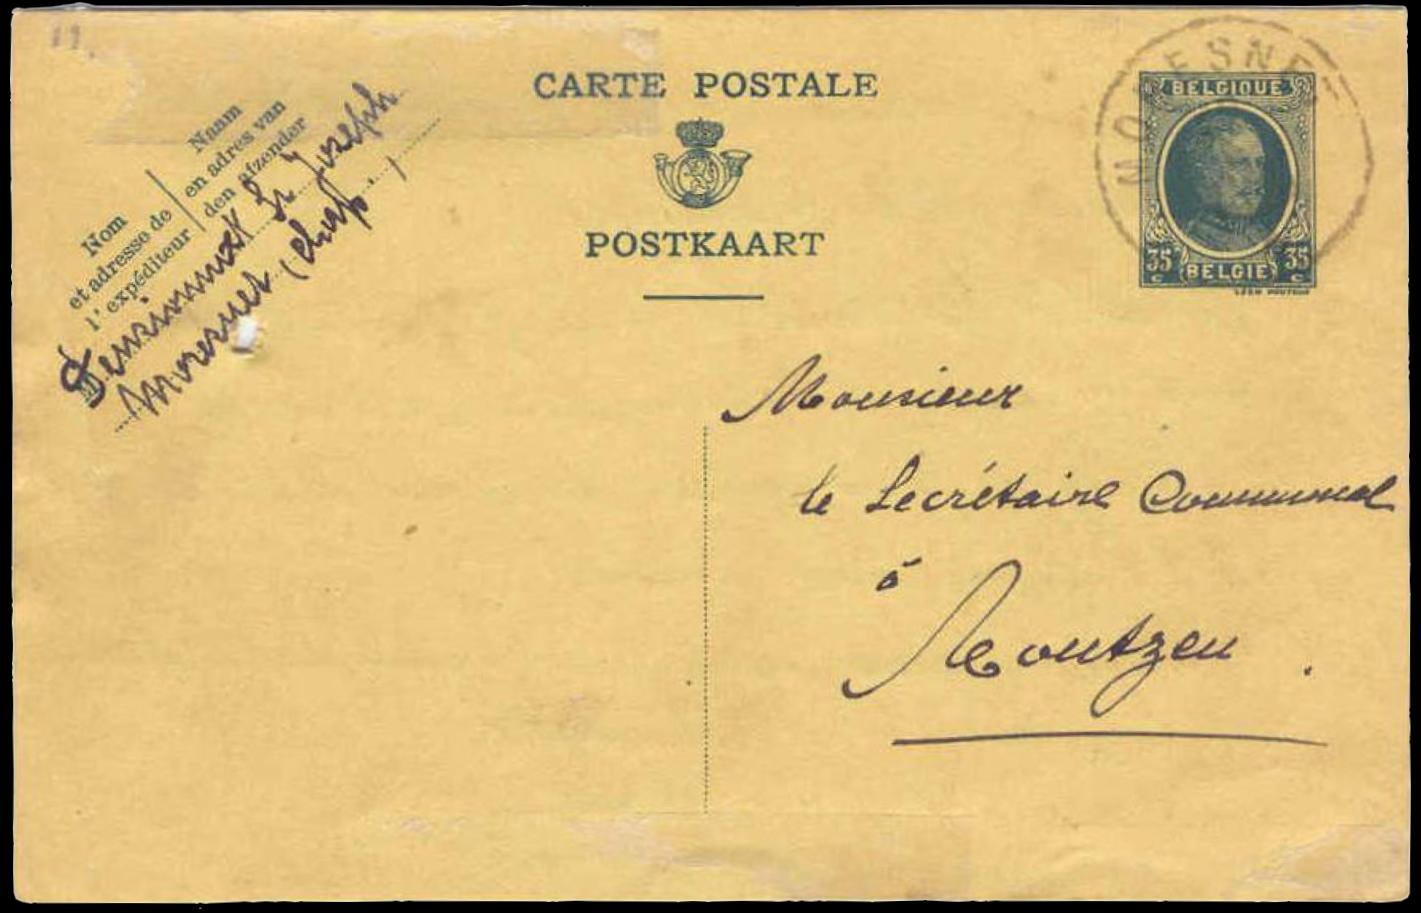 CARTE POSTALE
POSTKAART
Nom
et adresse de
l'expéditeur
Naam
en adres van
den afzender
Pensionnat St Joseph
Moresnet (chap.)
MORESNET
BELGIQUE
35 c BELGIË 35 c
Monsieur
le Secrétaire Communal
à
Montzen.